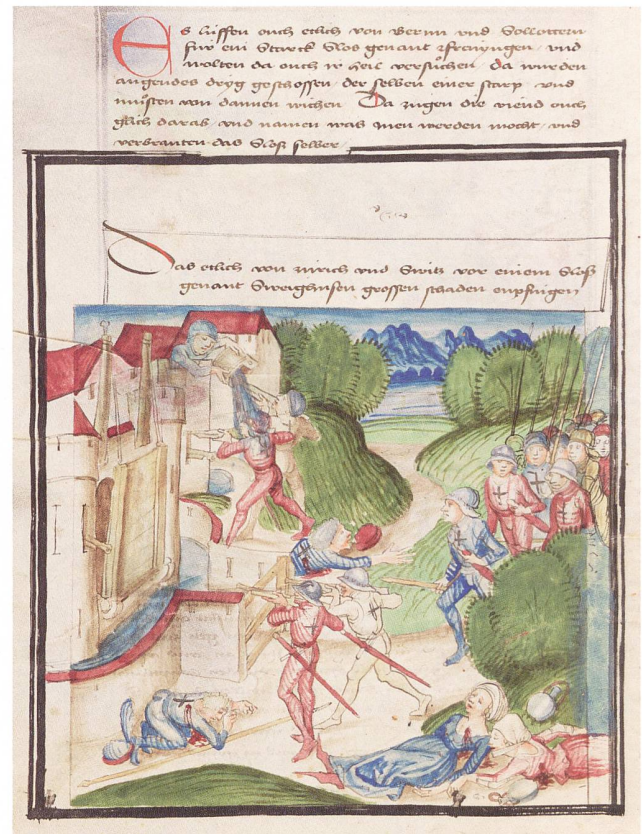 Es luffen ouch etlich von Bernn und Sollottern
fur ein Starck Slos genant Freinyngen und
wolten da ouch ir heil versuchen da wurden
angendes dryg geschossen der selben einer starp und
musten von dannen wichen Da zugen die viend ouch
glich darab und namen was inen werden mocht und
verbranten das Slos selber
Das etlich von zurich und Switz vor einem Slos
genant Sweighusen grossen schaden enpfingen